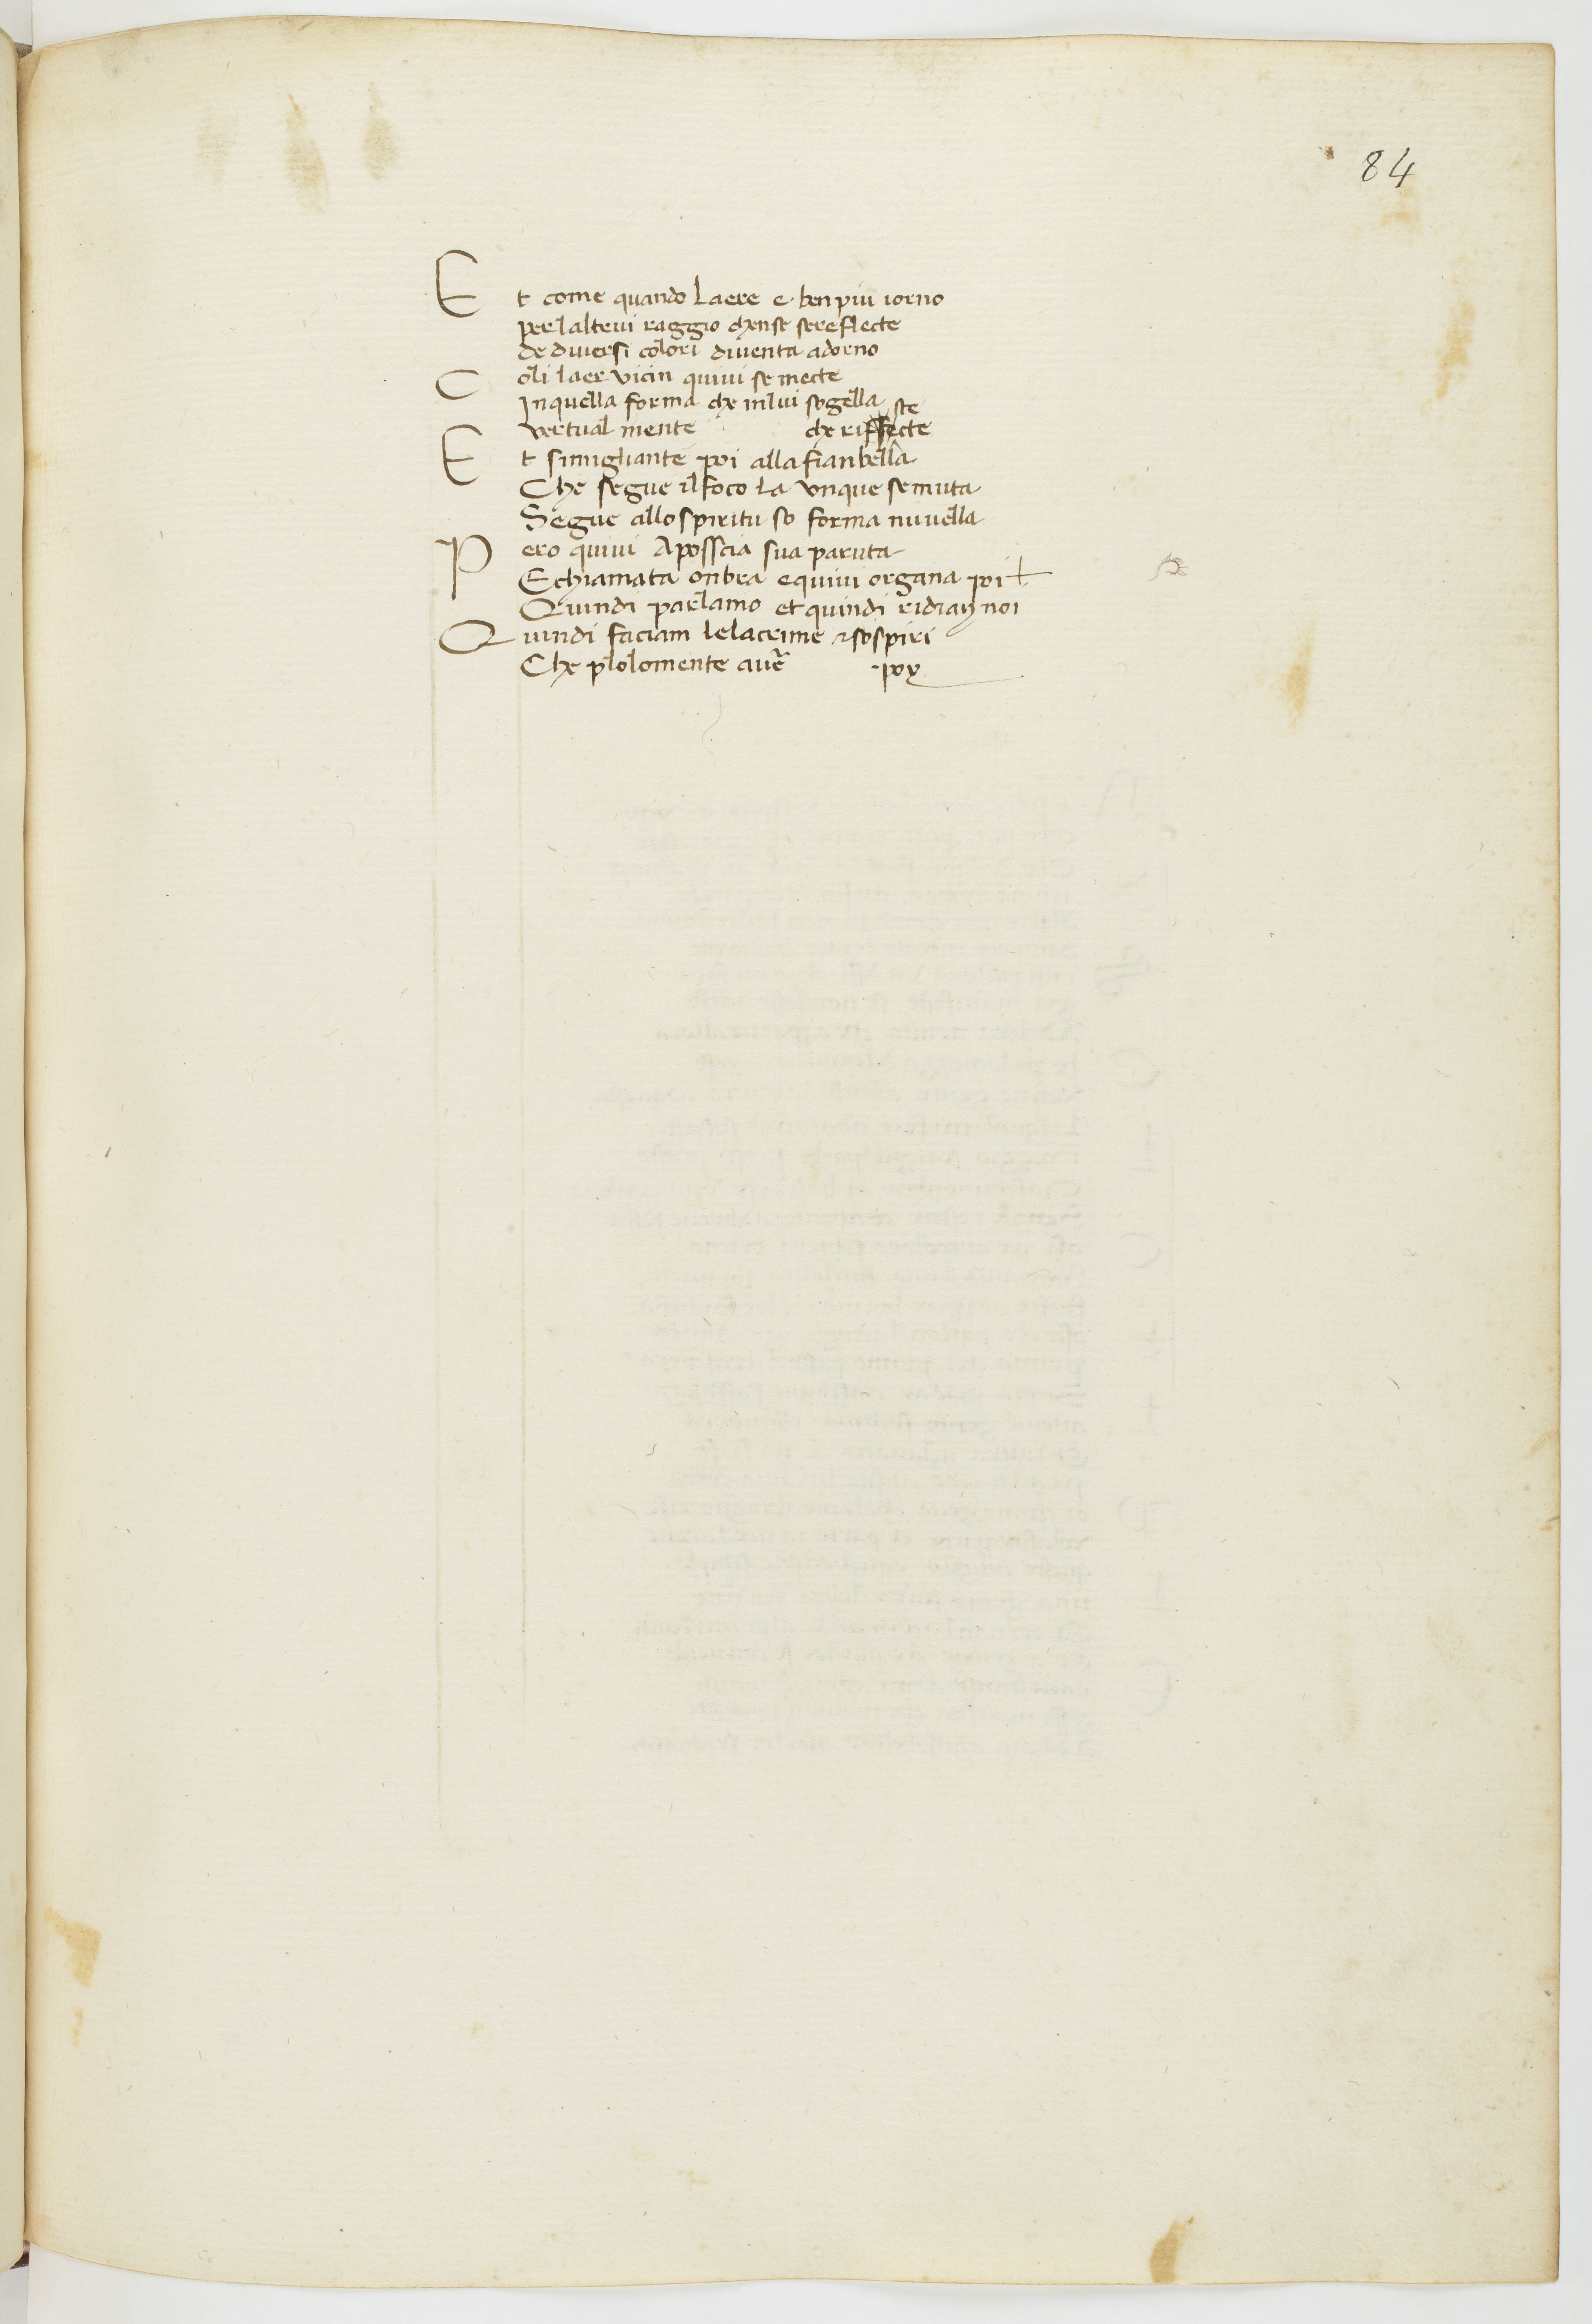 84
Et come quando laere e ben piu iorno
per laltrui raggio chense sereflecte
de diuersi colori diuenta adorno
Coli laer vicin quiui se mecte
In quella forma che in lui sogella
vertual mente che ri ste
Et simigliante poi alla fianbella
Che segue il foco la vnque se muta
Segue allo spiritu so forma nuuella
Pero quiui Aposscia sua paruta
E chiamata onbra e quiui organa poi
Quindi parlamo et quindi ridian noi
Quindi faciam le lacrime e sospiri
Che plolomente auē poy